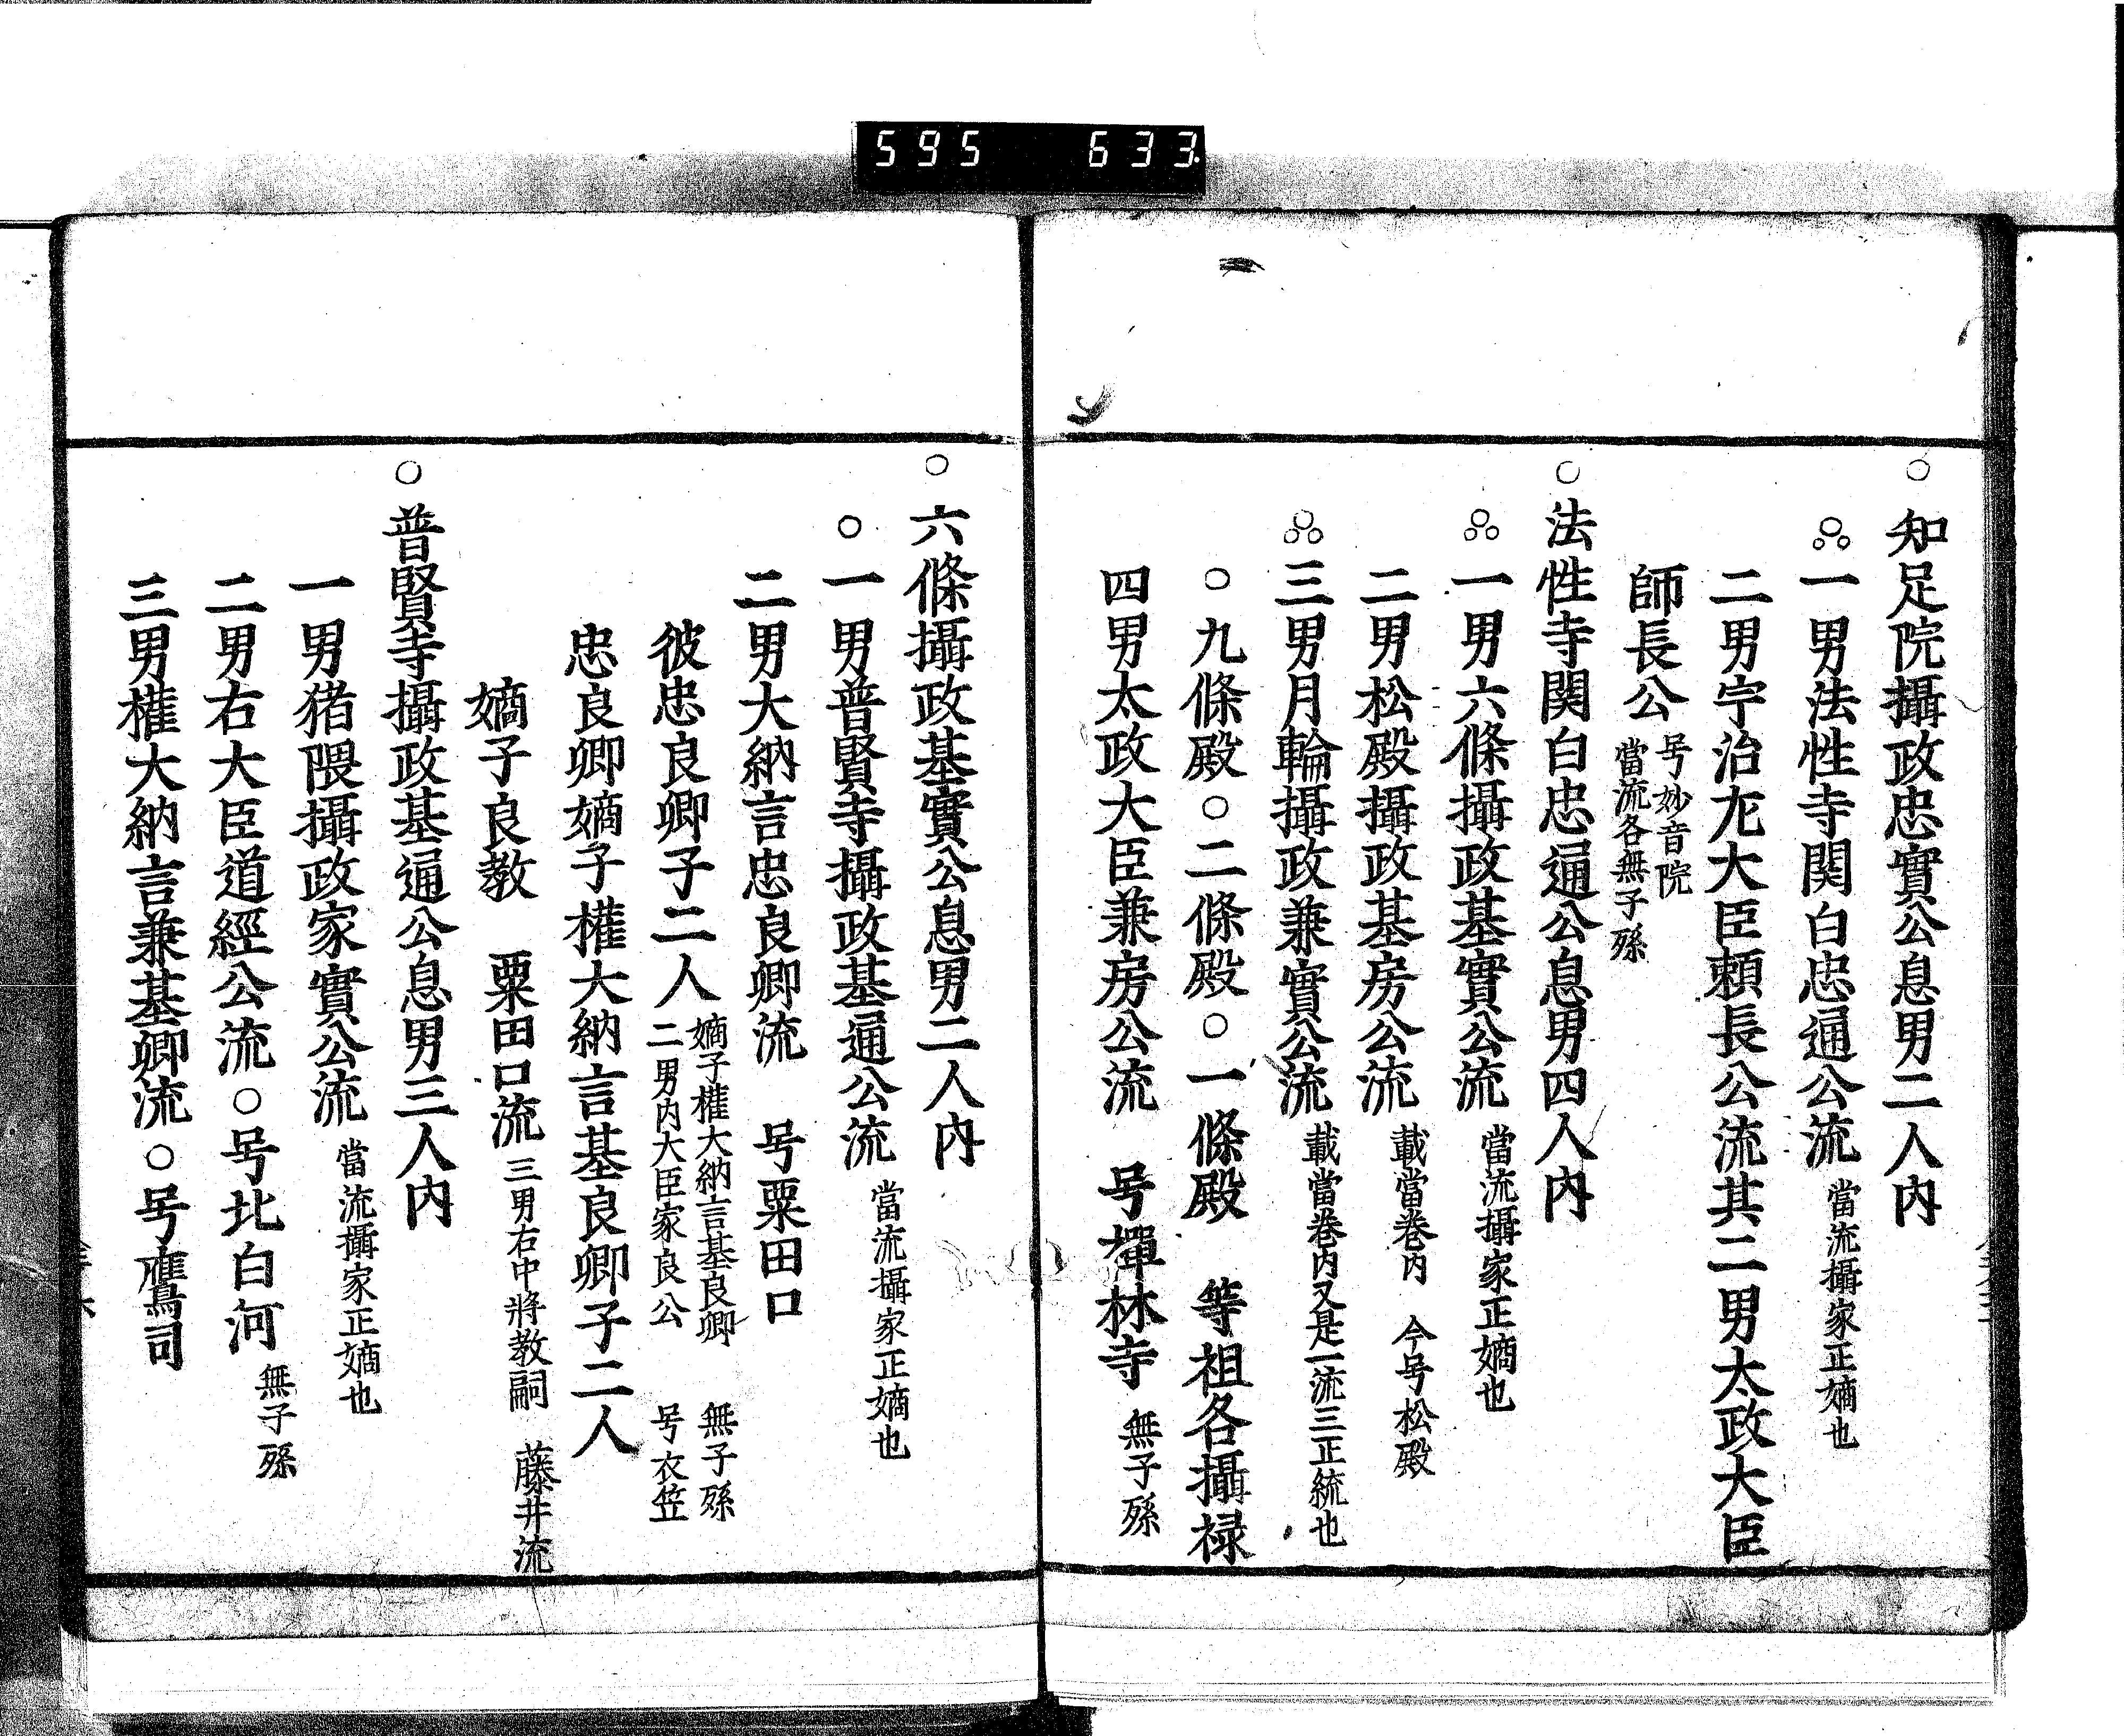 595 633
○知足院攝政忠實公息男二人内
一男法性寺関白忠通公流 當流攝家正嫡也
二男宇治左大臣頼長公流其二男太政大臣
師長公 号妙音院
當流各無子孫
○法性寺関白忠通公息男四人内
一男六條攝政基實公流 當流攝家正嫡也
二男松殿攝政基房公流 載當巻内 今号松殿
三男月輪攝政兼實公流 載當巻内又是一流三正統也
○九條殿○二條殿○一條殿 等祖各攝禄
四男太政大臣兼房公流 号禪林寺 無子孫
○六條攝政基實公息男二人内
○一男普賢寺攝政基通公流 當流攝家正嫡也
二男大納言忠良卿流 号粟田口
彼忠良卿子二人 嫡子權大納言基良卿 無子孫
二男内大臣家良公 号衣笠
忠良卿嫡子權大納言基良卿子二人
嫡子良教 粟田口流 三男右中將教嗣 藤井流
○普賢寺攝政基通公息男三人内
一男猪隈攝政家實公流 當流攝家正嫡也
二男右大臣道經公流○号北白河 無子孫
三男權大納言兼基卿流○号鷹司